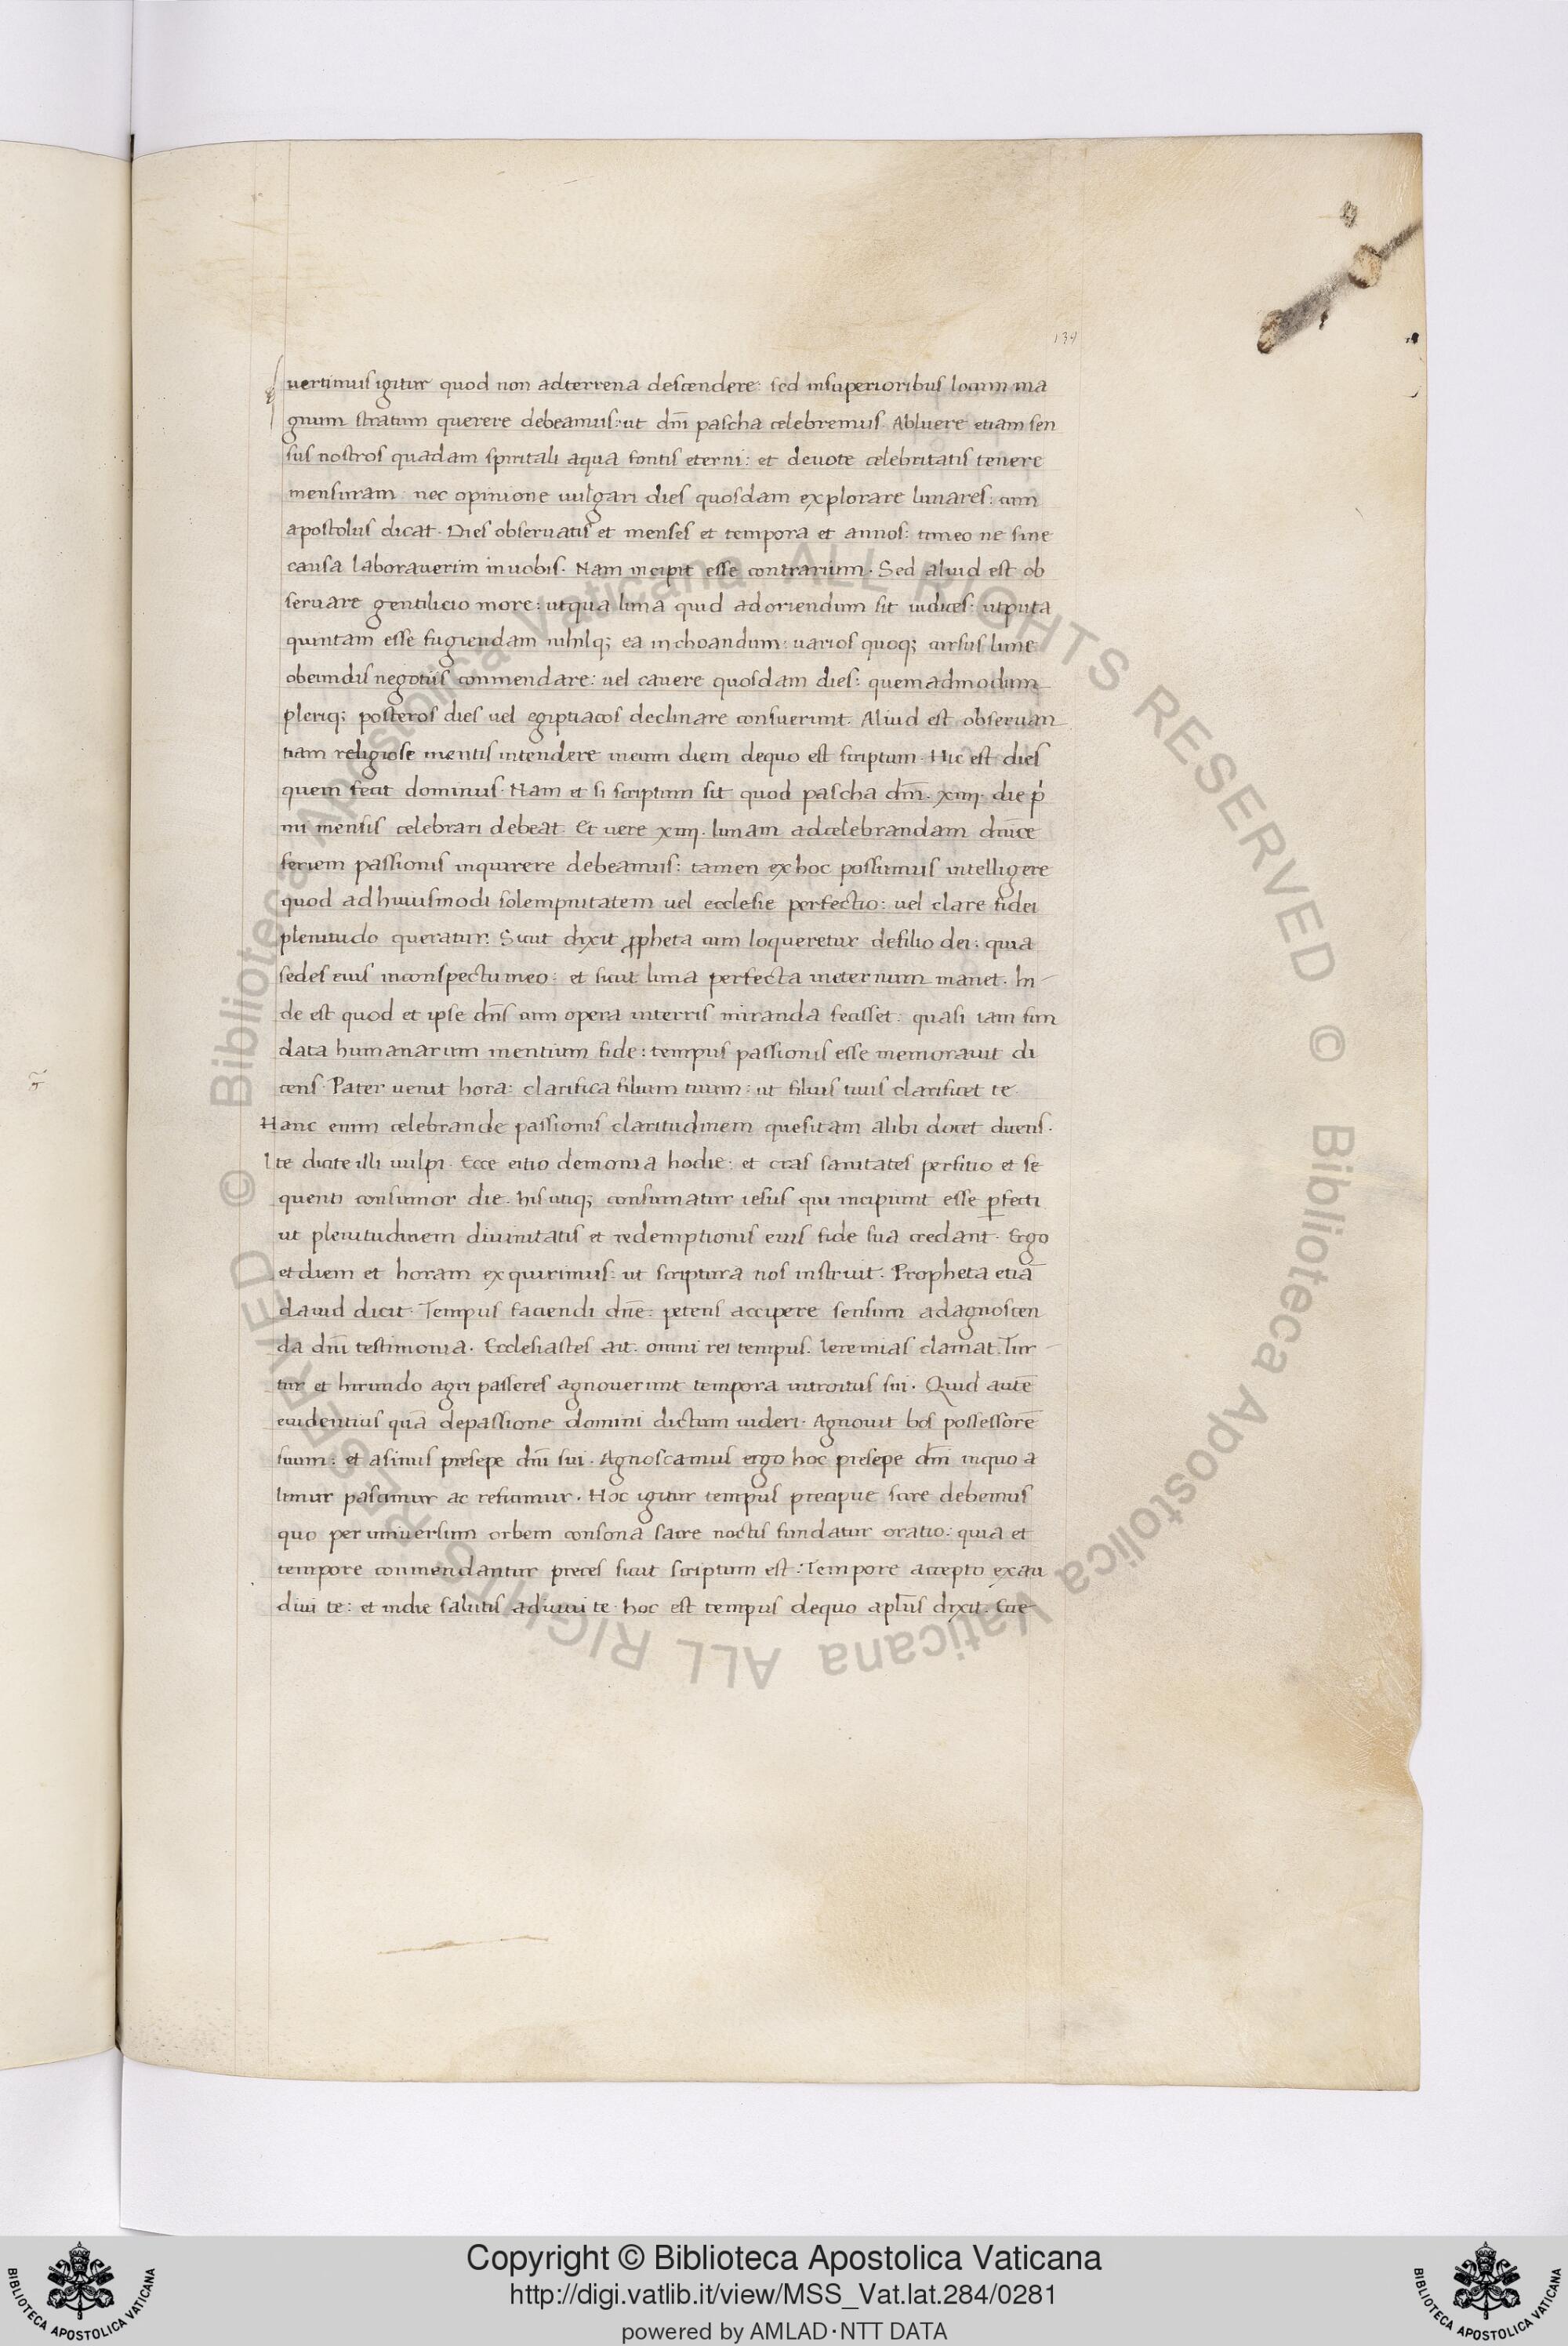 134
uertimus igitur quod non adterrena descendere: sed insuperioribus locum ma
gnum stratum querere debeamus: ut dn̄i pascha celebremus. Abluere etiam sen
sus nostros quadam spiritali aqua fontis eterni: et deuote celebritatis tenere
mensuram nec opinione uulgari dies quosdam explorare lunares: cum
apostolus dicat. Dies obseruatis et menses et tempora et annos: timeo ne sine
causa laborauerim inuobis. Nam incipit esse contrarium. Sed aliud est ob
seruare gentilicio more: utqua luna quid adoriendum sit iudices: utputa
quintam esse fugiendam nihilq; ea inchoandum: uarios quoq; cursus lune
obeundis negotiis conmendare: uel cauere quosdam dies: quemadmodum
pleriq; posteros dies uel egiptiacos declinare consuerunt. Aliud est obseruan
tiam religiose mentis intendere ineum diem dequo est scriptum. Hic est dies
quem fecit dominus. Nam et si scriptum sit quod pascha dn̄i. xiiii. die p̍
mi mensis celebrari debeat. Et uere xiiii. lunam adcelebrandam dn̄ice
seriem passionis inquirere debeamus: tamen exhoc possumus intelligere
quod adhuiusmodi solempnitatem uel ecclesie perfectio: uel clare fidei
plenitudo queratur. Sicut dixit ꝓpheta cum loqueretur defilio dei: quia
sedes eius inconspectumeo: et sicut luna perfecta ineternum manet. In
de est quod et ipse dn̄s cum opera interris miranda fecisset: quasi iam fun
data humanarum mentium fide: tempus passionis esse memorauit di
cens. Pater uenit hora: clarifica filium tuum: ut filius tuus clarificet te.
Hanc enim celebrande passionis claritudinem quesitam alibi docet dicens.
Ite dicite illi uulpi. Ecce eitio demonia hodie: et cras sanitates perfitio et se
quenti consumor die. his utiq; consumatur iesus qui incipiunt esse ꝑfecti
ut plenitudinem diuinitatis et redemptionis eius fide sua credant. Ergo
etdiem et horam exquirimus: ut scriptura nos instruit. Propheta etiā
dauid dicit. Tempus faciendi dn̄e: petens accipere sensum adagnoscen
da dn̄i testimonia. Ecclesiastes ait. omni rei tempus. Ieremias clamat. Tur
tur et hirundo agri passeres agnouerunt tempora introitus sui. Quid autē
euidentius quā depassione domini dictum uideri. Agnouit bos possessorē
suum: et asinus presepe dn̄i sui. Agnoscamus ergo hoc presepe dn̄i inquo a
limur pascimur ac reficimur. Hoc igitur tempus precipue scire debemus
quo per uniuersum orbem consona sacre noctis fundatur oratio: quia et
tempore conmendantur preces sicut scriptum est: Tempore accepto exau
diui te: et indie salutis adiuui te hoc est tempus dequo apl̄us dixit. Ecce
© Biblioteca Apostolica Vaticana ALL RIGHTS RESERVED © Biblioteca Apostolica Vaticana ALL RIGHTS RESERVED
Copyright © Biblioteca Apostolica Vaticana
http://digi.vatlib.it/view/MSS_Vat.lat.284/0281
powered by AMLAD·NTT DATA
BIBLIOTECA APOSTOLICA VATICANA
BIBLIOTECA APOSTOLICA VATICANA